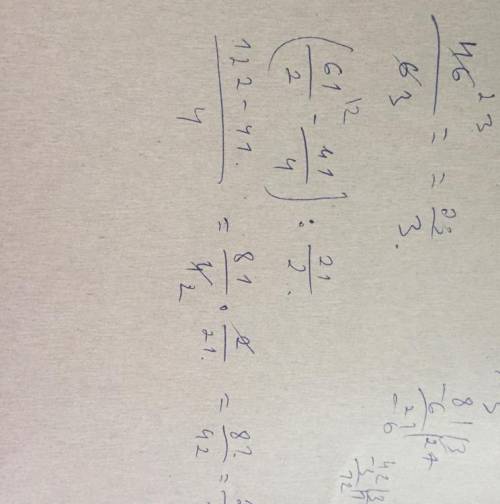 46 23
63 = = 22/3.
(61/2 |2 - 41/4) : 21/2.
122-41./4 = 81/4 2 · 2/21. = 81./42 =
81|3
-6|27
21
-6
42|3
-3|1
12